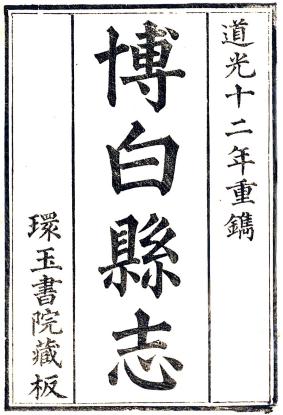 道光十二年重鐫
博白縣志
環玉書院藏板